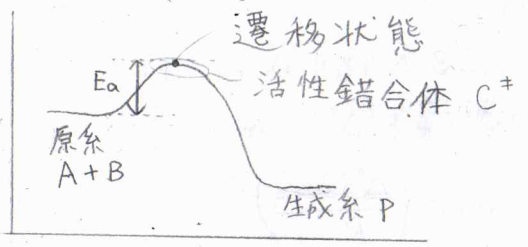 遷移状態
Ea
活性錯合体 C‡
原系
A+B
生成系 P